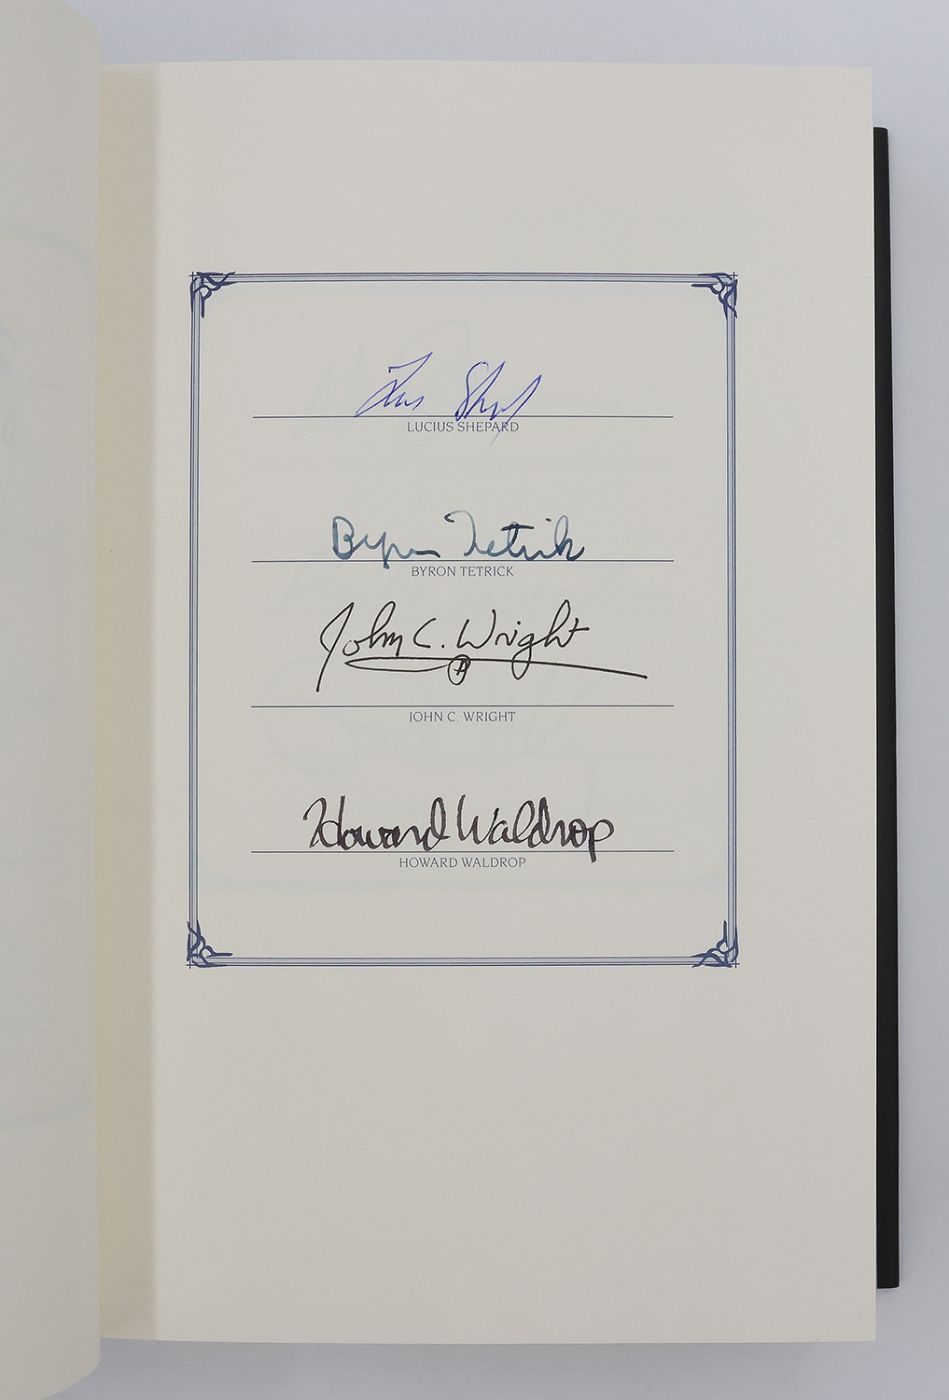 Lucius Shepard
LUCIUS SHEPARD
Byron Tetrick
BYRON TETRICK
John C. Wright
JOHN C. WRIGHT
Howard Waldrop
HOWARD WALDROP